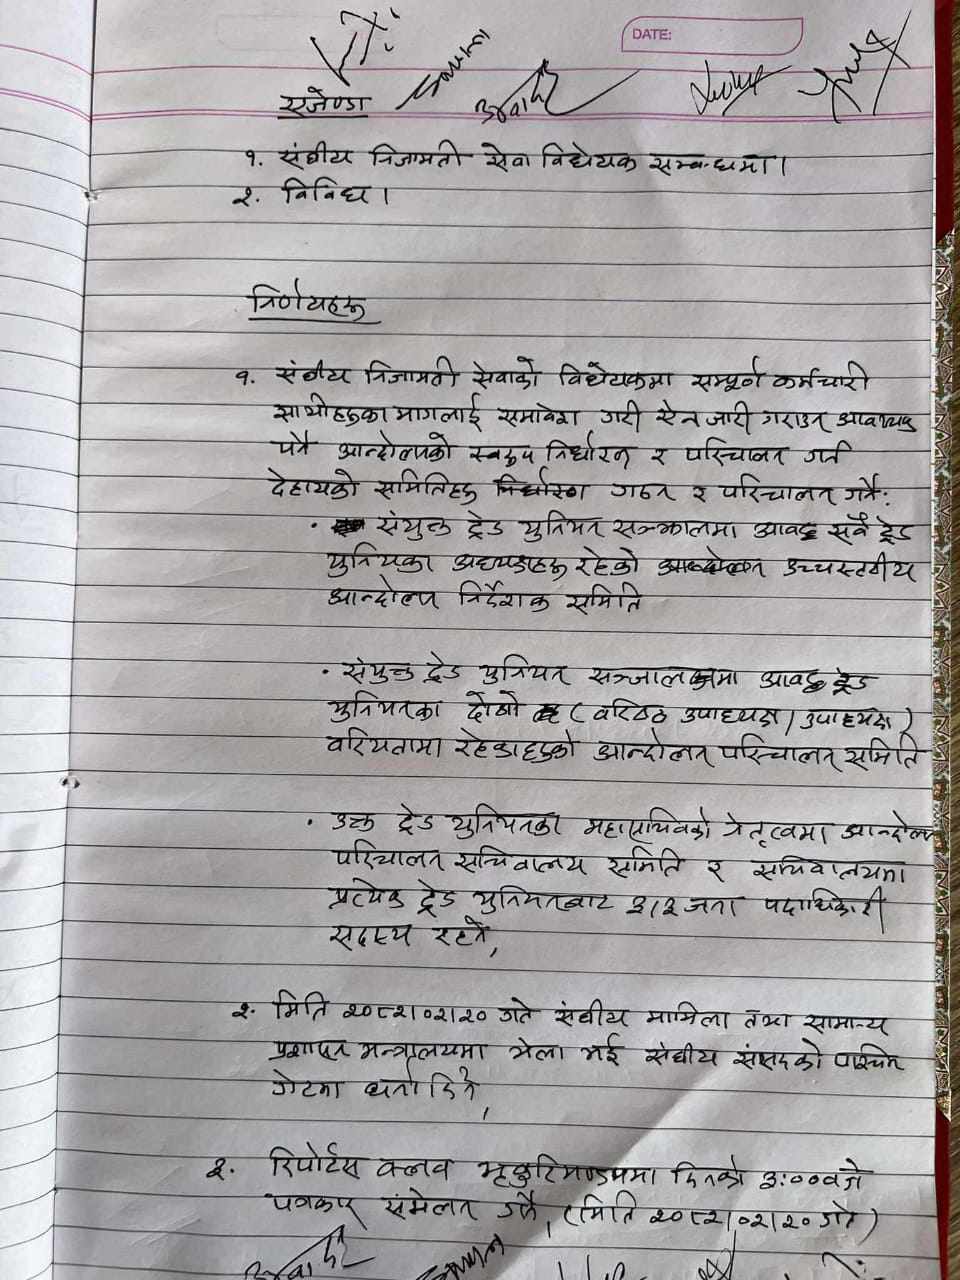 DATE:
एजेण्डा
१. संघीय निजामती सेवा विधेयक सम्बन्धमा।
२. विविध।
निर्णयहरू
१. संघीय निजामती सेवाको विधेयकमा सम्पूर्ण कर्मचारी
साथीहरुका मागलाई समावेश गरी ऐन जारी गराउन आवश्यक
पर्ने आन्दोलनको स्वरुप निर्धारन र परिचालन गर्न
देहायको समितिहरु गठन र परिचालन गर्ने:
• संयुक्त ट्रेड युनियन सञ्जालमा आवद्ध सवै ट्रेड
युनियका अध्यक्षहरु रहेको उच्चस्तरीय
आन्दोलन निर्देशक समिति
• संयुक्त ट्रेड युनियन सञ्जालमा आवद्ध ट्रेड
युनियनका दोश्रो (वरिष्ठ उपाध्यक्ष / उपाध्यक्ष)
वरियतामा रहेकाहरुको आन्दोलन परिचालन समिति
• उक्त ट्रेड युनियनका महासचिवको नेतृत्वमा आन्दोलन
परिचालन सचिवालय समिति र सचिवालयमा
प्रत्येक ट्रेड युनियनबाट २/२ जना पदाधिकारी
सदस्य रहने,
२. मिति २०८२।०२।२० गते संघीय मामिला तथा सामान्य
प्रशासन मन्त्रालयमा भेला भई संघीय संसदको पश्चिम
गेटमा धर्ना दिने,
३. रिपोर्टस क्लव भृकुटिमण्डपमा दिनको ३:०० वजे
पत्रकार संमेलन गर्ने, (मिति २०८२।०२।२० गते)